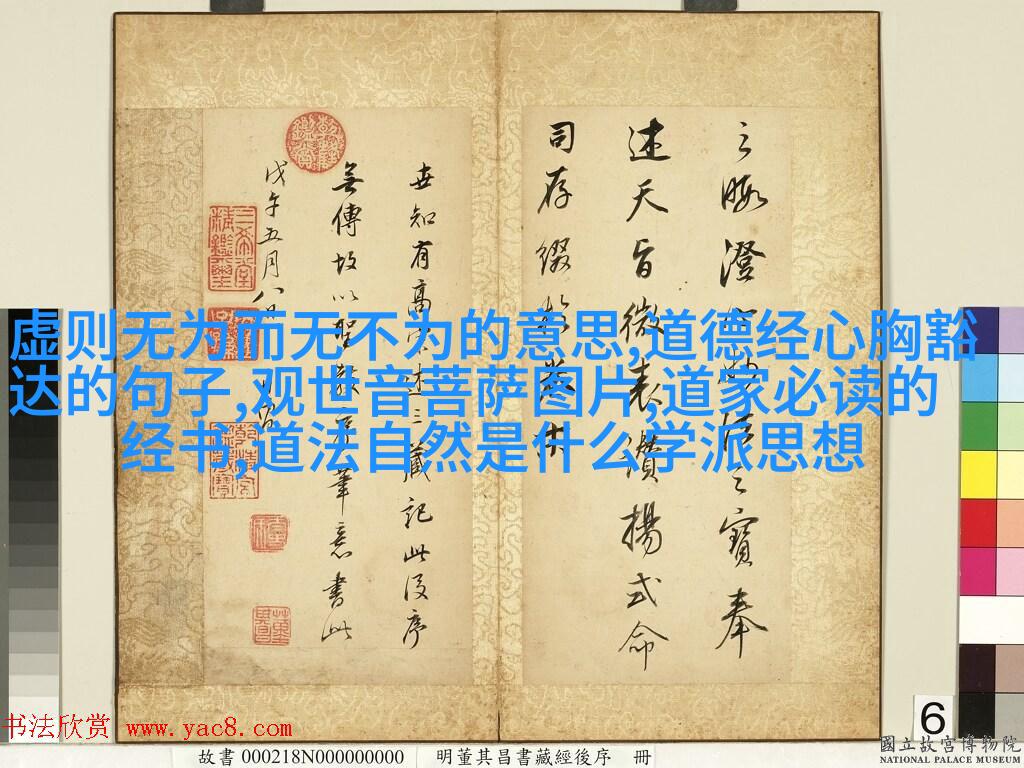 虚则无为而无不为的意思,道德经心胸豁
达的句子,观世音菩萨图片,道家必读的
经书,道法自然是什么学派思想
之晦澄法之寶奉
述天旨微表讚揚式命
司存綴於卷末
世知有高述三藏記此後序
無傳故以聖教序筆意書此
戊午五月八日
6
书法欣赏 www.yac8.com
故書 000218N000000000 明董其昌書藏經後序 冊
國立故宮博物院
NATIONAL PALACE MUSEUM